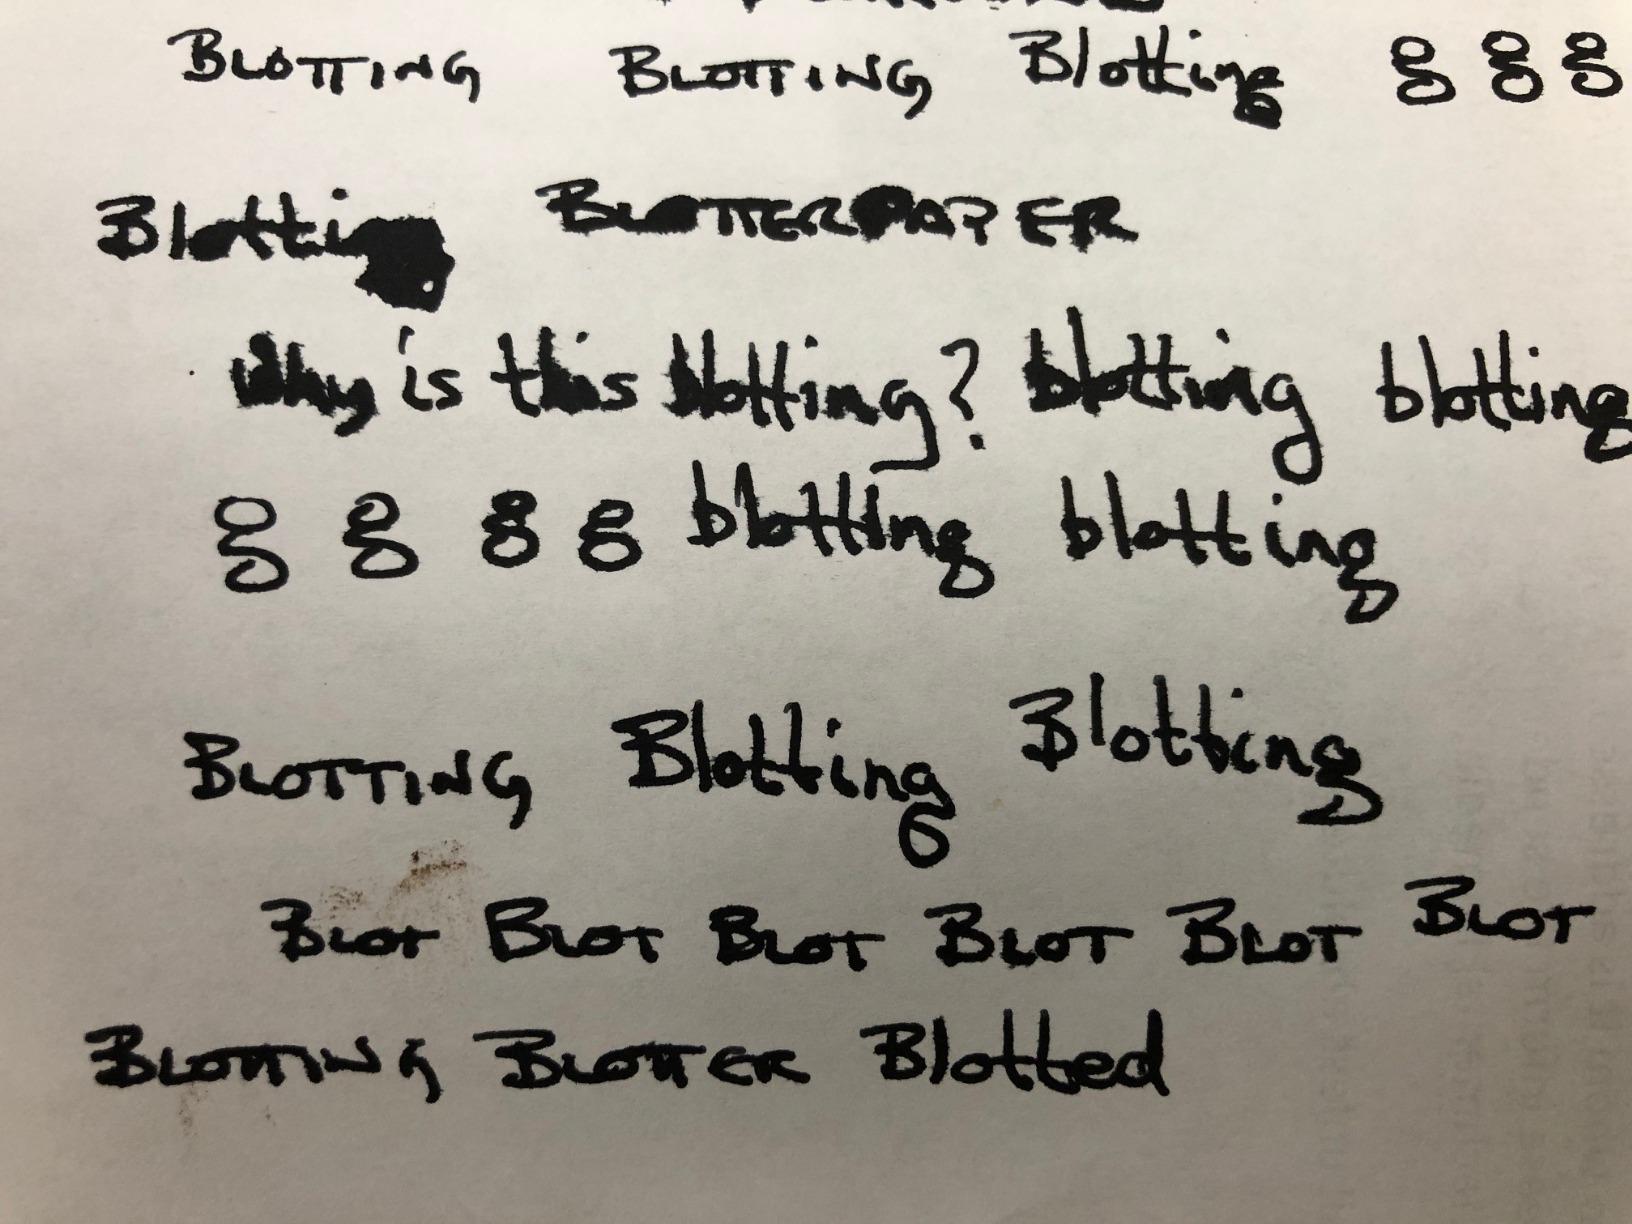 BLOTTING BLOTTING Blotting g g g
Blotting BLOTTERPAPER
Why is this blotting? blotting blotting
g g g g blotting blotting
BLOTTING Blotting Blotting
BLOT BLOT BLOT BLOT BLOT BLOT
BLOTTING BLOTTER Blotted